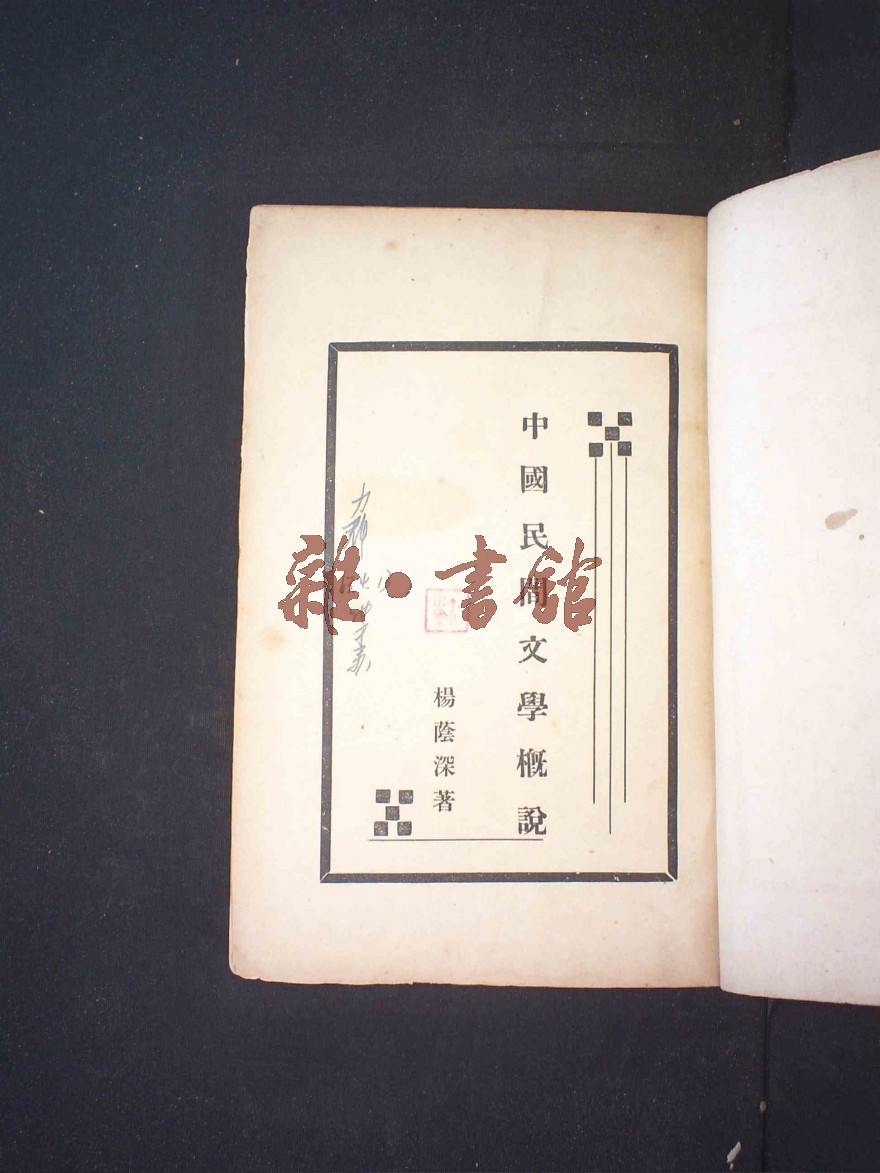 中國民間文學概說
楊蔭深著
雜·書館